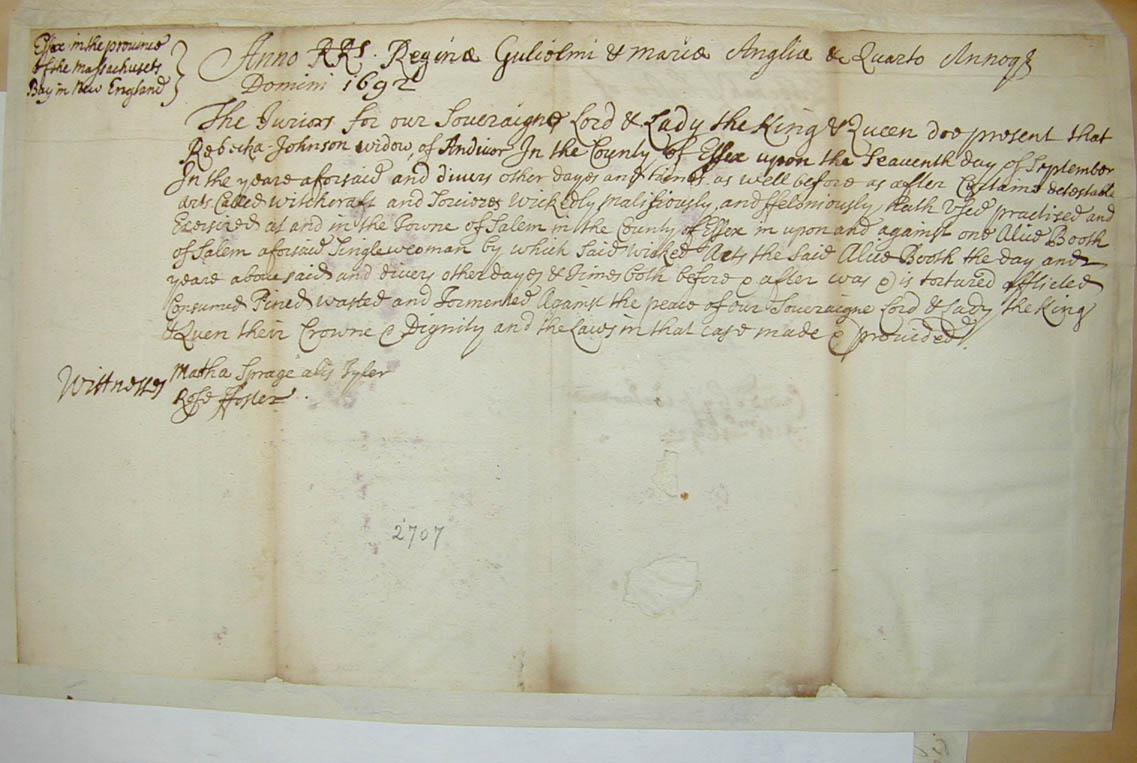 Essex in the province
of the Massachusets
Bay in New England
Anno RRs. Reginæ Gulielmi & Mariæ Angliæ &c Quarto Annoq
Domini 1692
The Juriors for our Soveraigne Lord & Lady the King & Queen doe present that
Rebecka Johnson widow, of Andivor In the County of Essex upon the Seaventh day of September
In the yeare aforsaid and divers other dayes and times as well before as after Certaine detestable
arts Called Witchcraft and Sorceries Wickedly Malisiously and ffeloniously hath Used practised and
Exercised at and in the Towne of Salem in the County of Essex in upon and against one Alice Booth
of Salem aforsaid Single woman by which said wicked Arts the Said Alice Booth the day and
yeare abovesaid and divers other dayes & times both before & after was & is tortured afflicted
Consumed Pined wasted and Tormented Against the peace of our Soveraigne Lord & Lady the King
& Quen their Crowne & Dignity and the Laws in that case made & provided
Wittnesses
Matha Sprage alis Tyler
Rose ffoster
2707